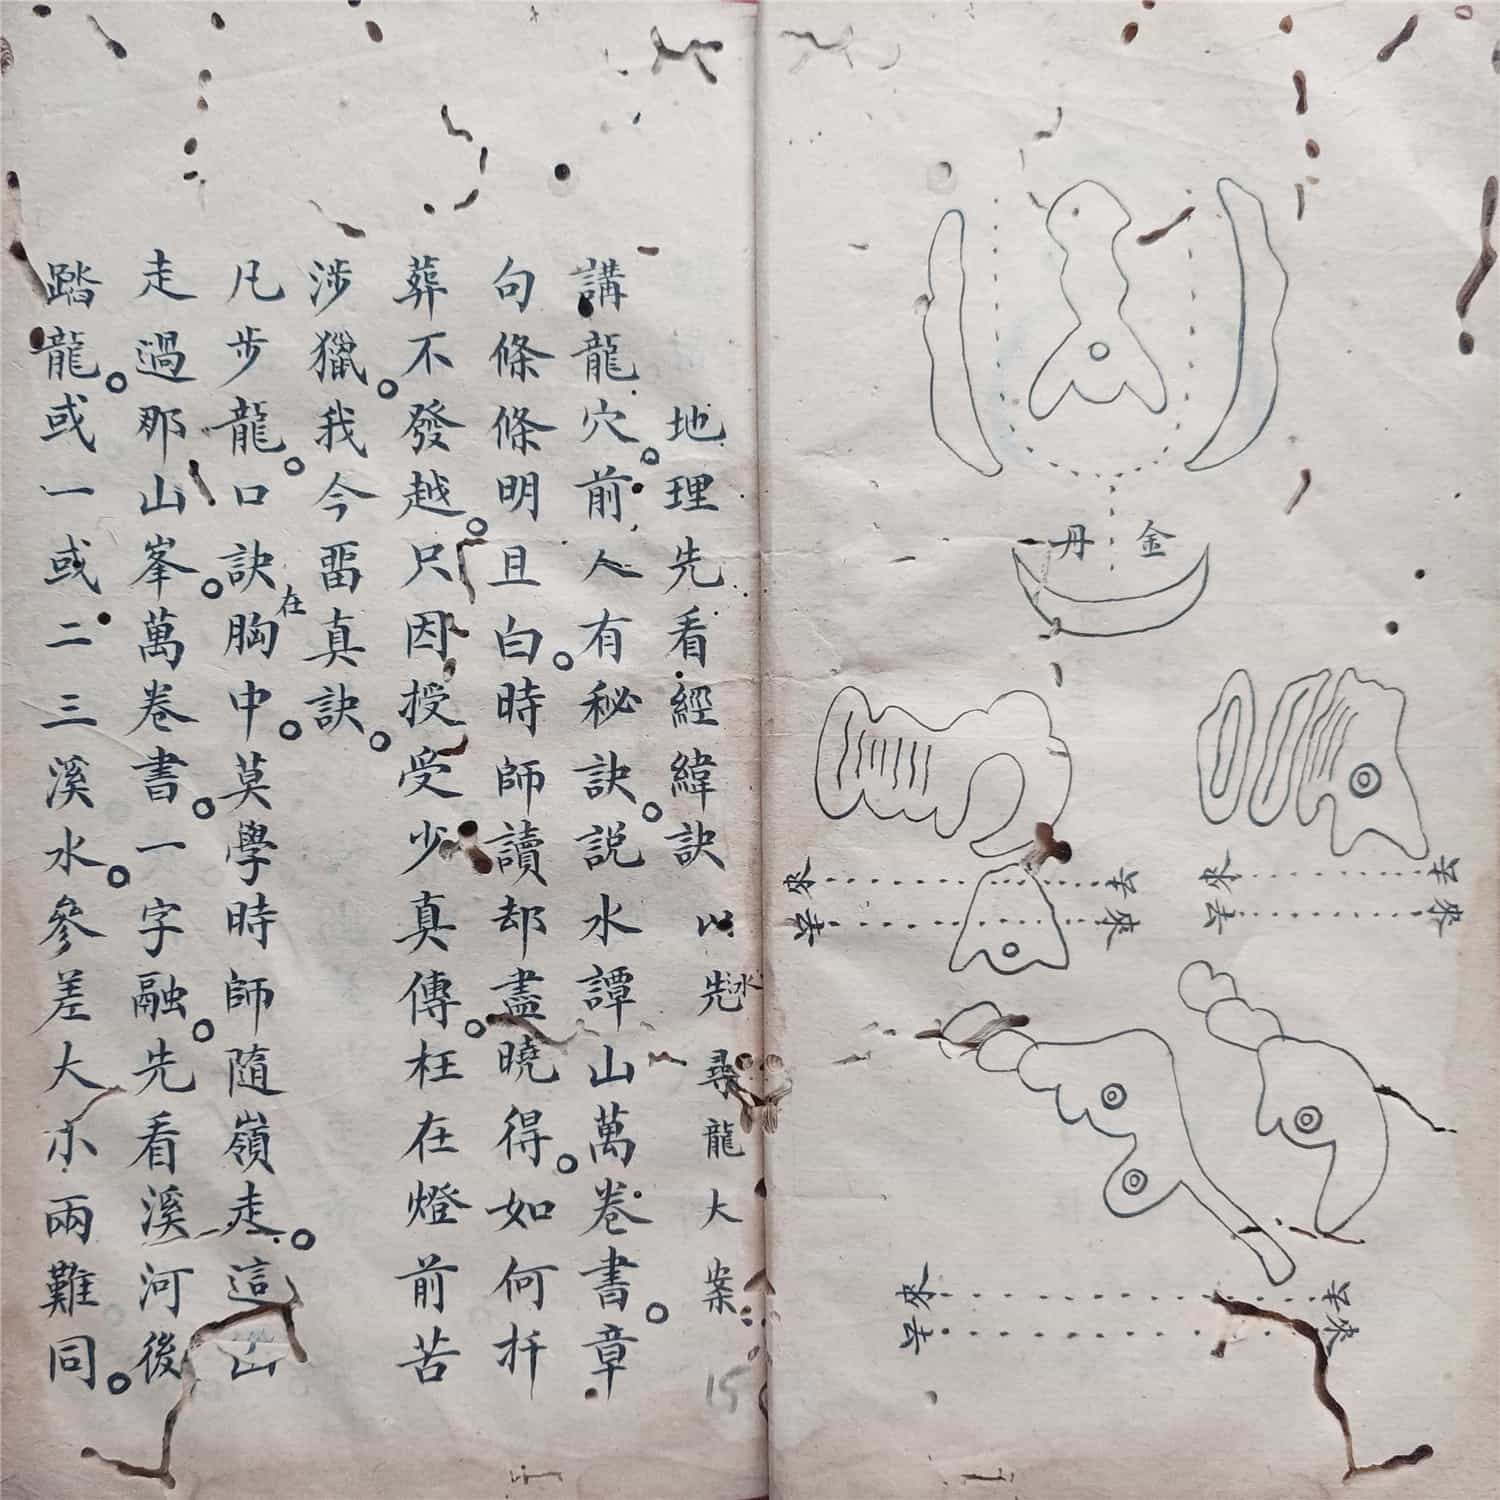 金丹
來去
地理先看經緯訣 以先水尋龍大案
講龍穴。前人有秘訣。説水譚山萬卷書。章
句條條明且白。時師讀却盡曉得。如何扦
葬不發越。只因授受少真傳。枉在燈前苦
涉獵。我今畱真訣。
凡步龍。口訣在胸中。莫學時師隨嶺走。這山
走過那山峯。萬卷書。一字融。先看溪河後
踏龍。或一或二三溪水。參差大小兩難同。
15